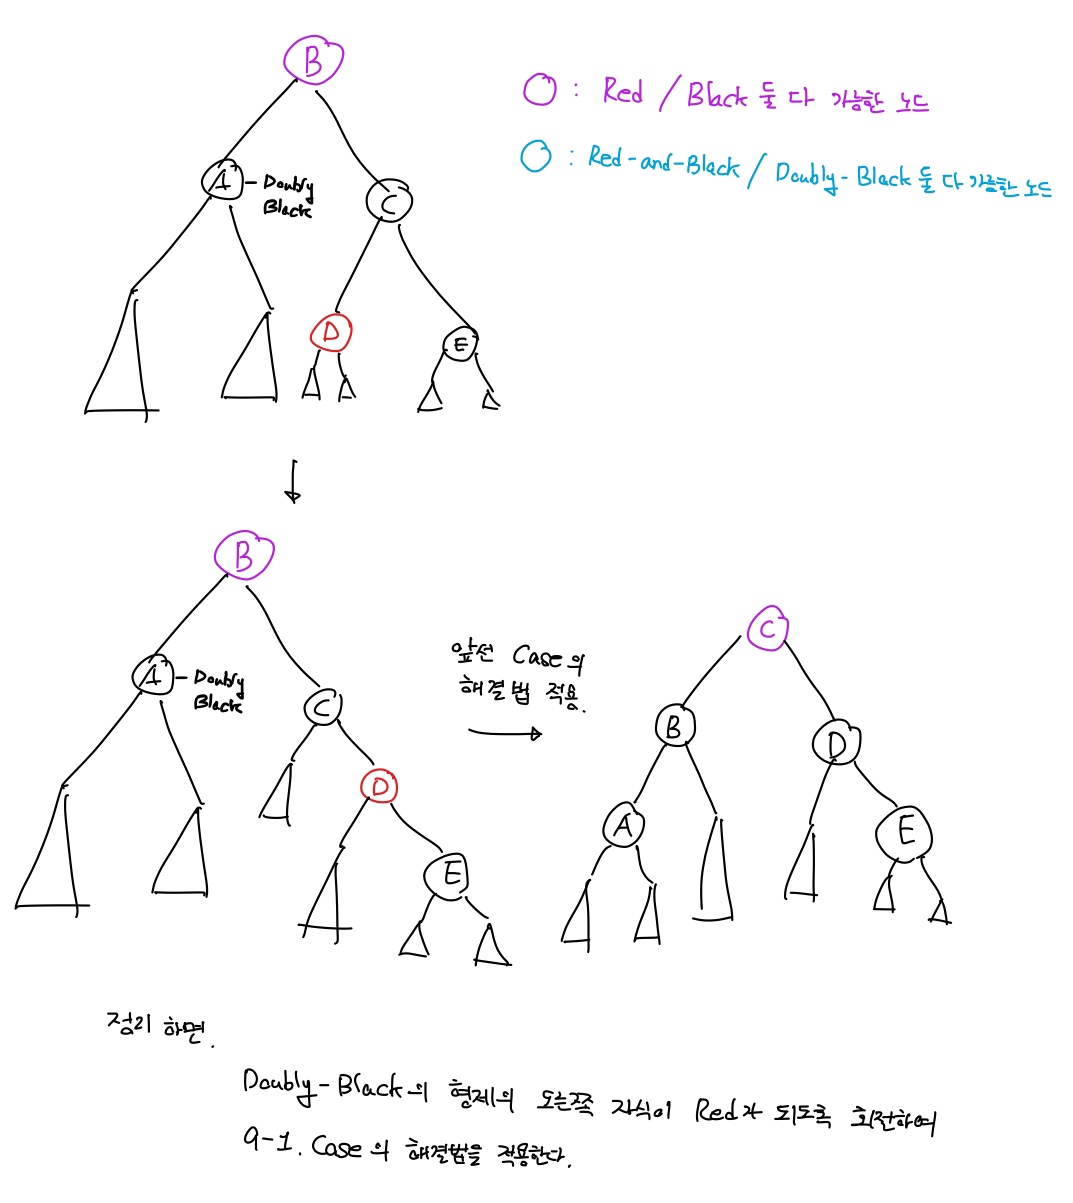 B
○ : Red / Black 둘 다 가능한 노드
○ : Red-and-Black / Doubly-Black 둘 다 가능한 노드
A - Doubly
Black
C
D
E
B
A - Doubly
Black
C
D
E
앞선 Case의
해결법 적용.
C
B
D
A
E
정리 하면.
Doubly-Black의 형제의 오른쪽 자식이 Red가 되도록 회전하여
9-1. Case의 해결법을 적용한다.